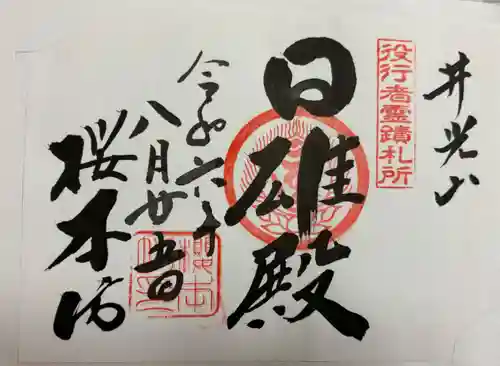 井光山
役行者靈蹟札所
日雄殿
令和六年
八月廿五日
桜本坊
櫻本